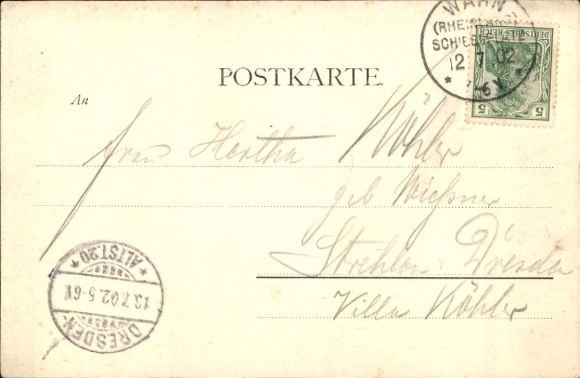 WAHN
(RHEINLAND)
SCHIESSPLATZ
12 7 02
DEUTSCHES REICH
5 5
POSTKARTE.
An
Frau Hertha Köhler
geb Wießner
Strehlen-Dresden
Villa Köhler
DRESDEN-
13.7.02.5-6V
* ALTST.20 *